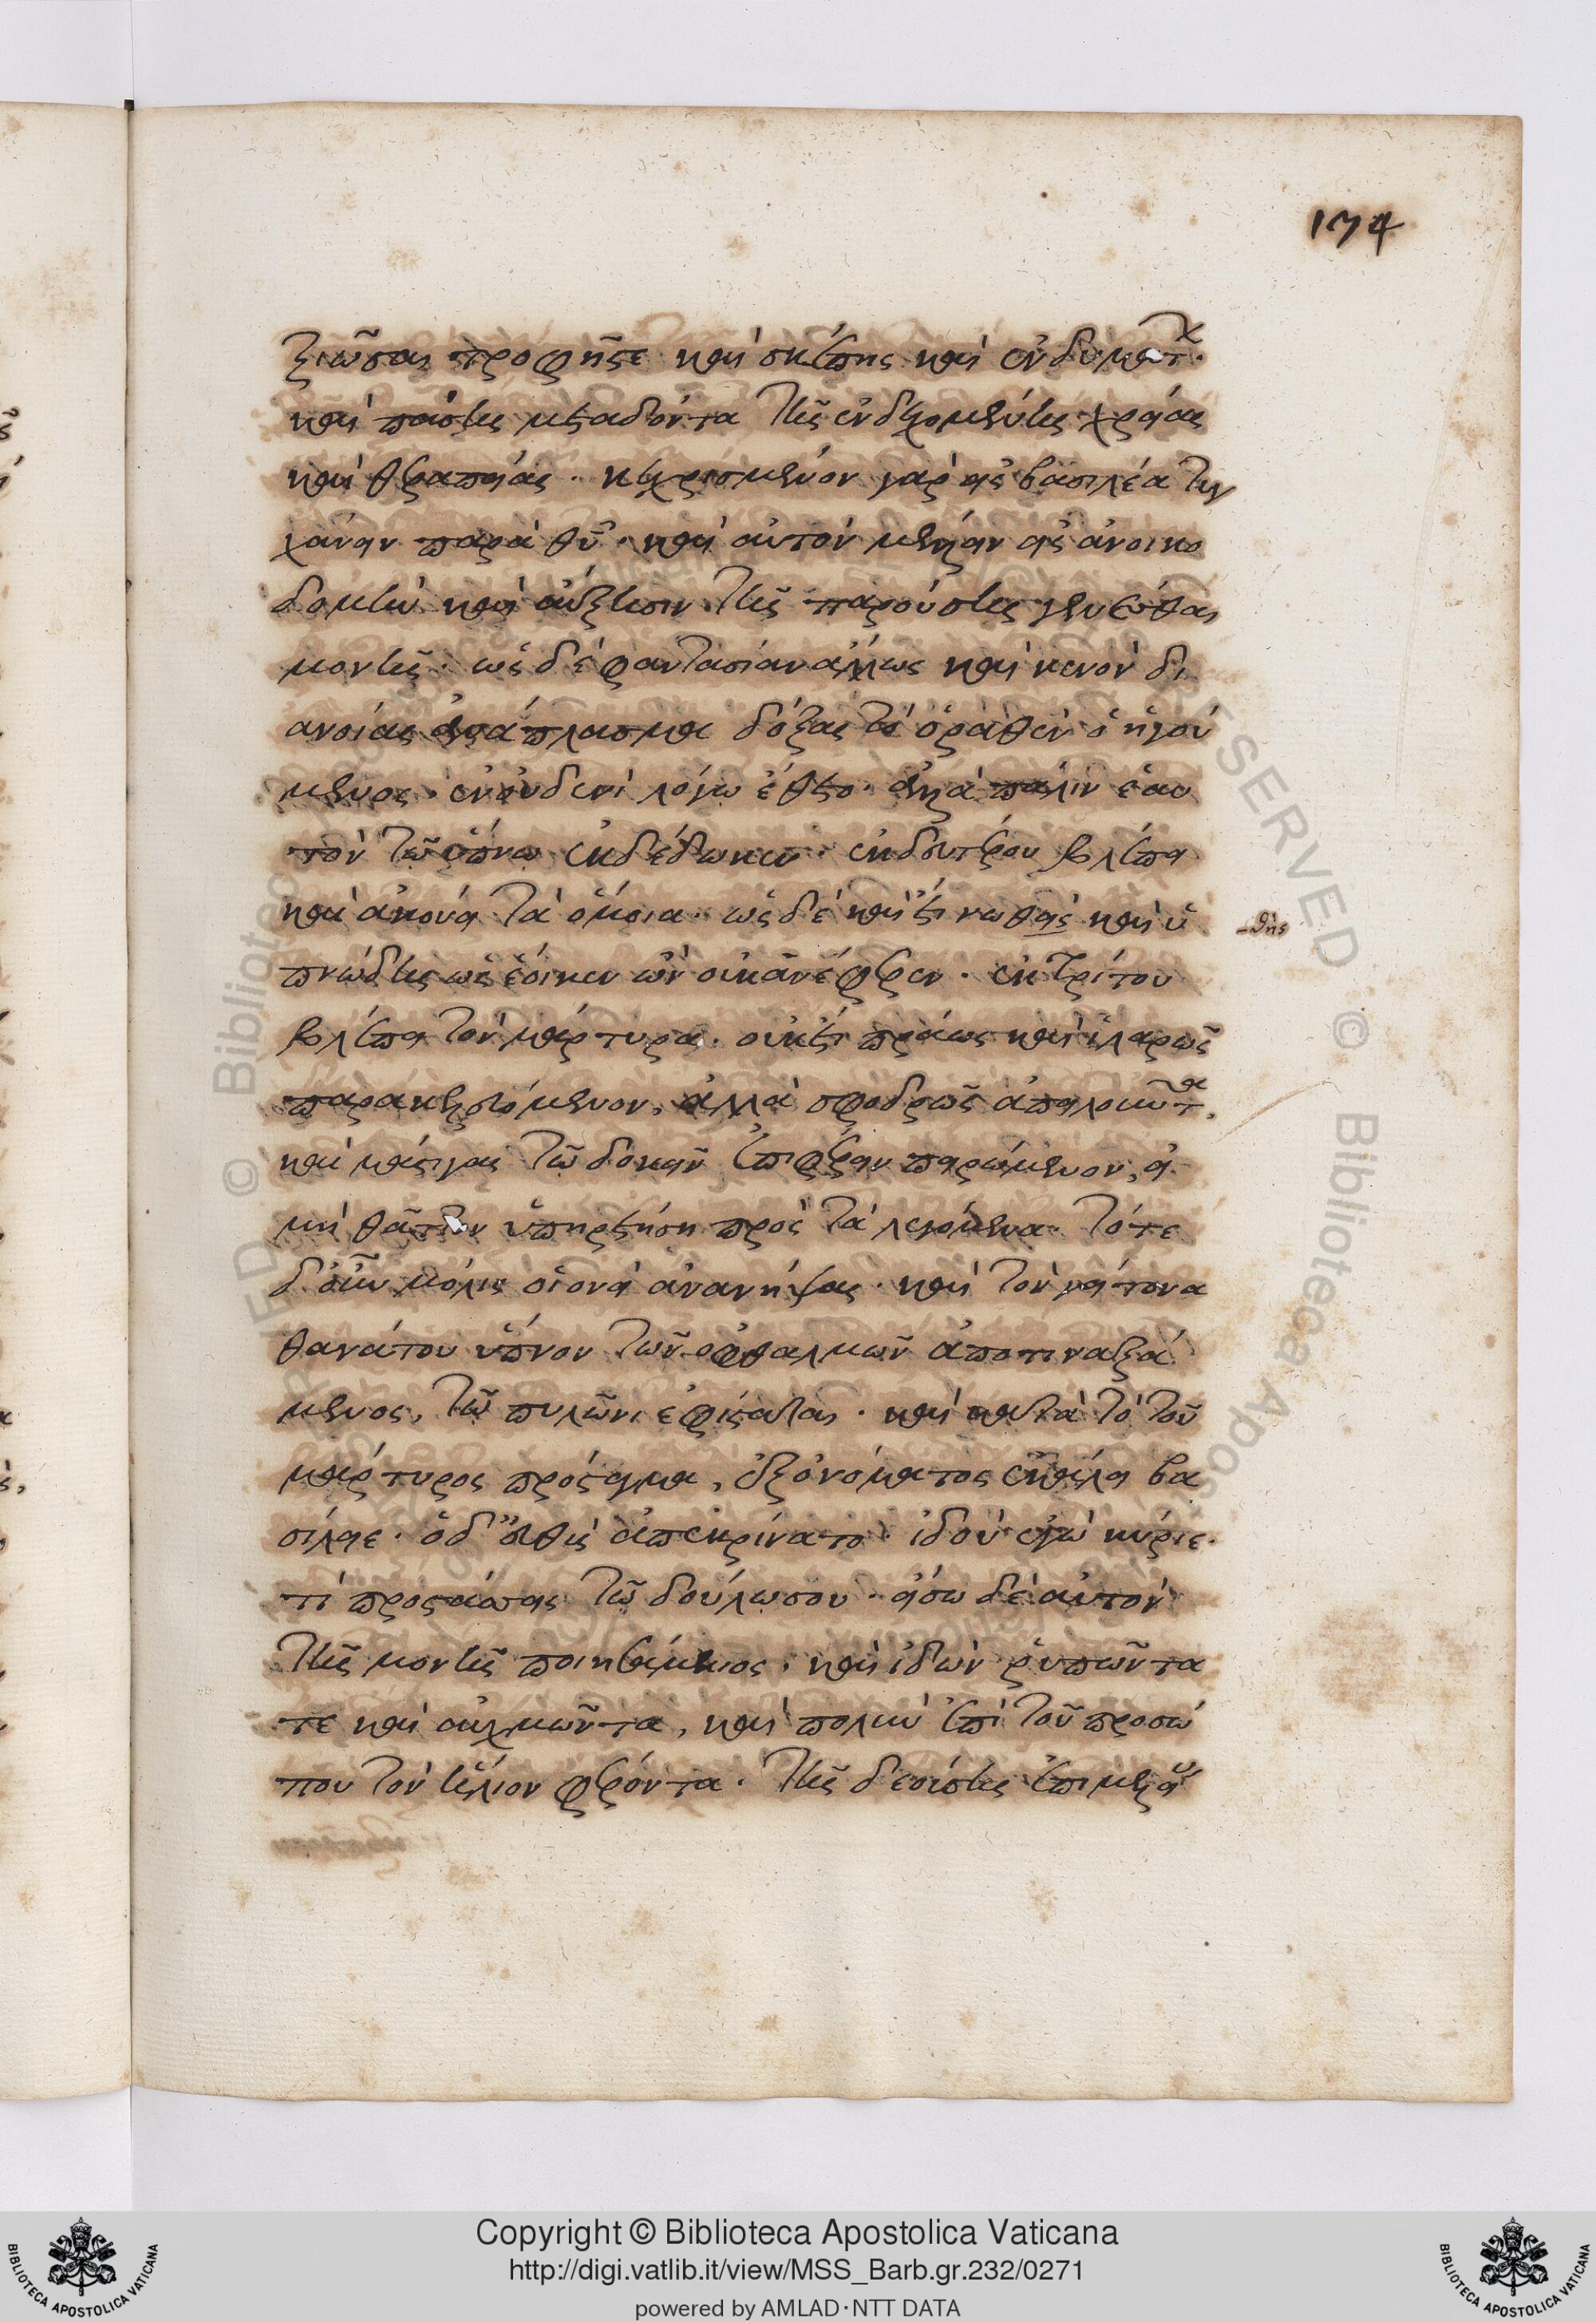 174
ξιῶσαι τροφῆς τε καὶ σκέπης καὶ ἐνδυμάτ(ων)·
καὶ πάσης μεταδόντα τῆς ἐνδεχομένης χρείας
καὶ θεραπείας· κεχρισμένον γὰρ εἰς βασιλέα τυγ
χάνειν παρὰ θῡ· καὶ αὐτὸν μέλλειν εἰς ἀνοικο
δομὴν καὶ αὔξησιν τῆς παρούσης γενέσθαι
μονῆς· ὡς δὲ φαντασίαν ἄλλως καὶ κενὸν δι
ανοίας ἀνάπλασμα δόξας τὸ ὁραθὲν ὁ ἡγού
μενος· ἐν οὐδενὶ λόγω ἔθετο· ἀλλὰ πάλιν ἑαυ
τὸν τῶ ὕπνω ἐκδέδωκεν· ἐκ δευτέρου βλέπει
καὶ ἀκούει τὰ ὅμοια· ὡς δὲ καὶ ἔτι νωθεὶς καὶ ὑ
-θὴς
πνώδης ὡς ἔοικεν ὢν οὐκ ἀνέφερεν· ἐκ τρίτου
βλέπει τὸν μάρτυρα· οὐκέτι πράως καὶ ἱλαρῶς
παρακελευόμενον, ἀλλὰ σφοδρῶς ἀπειλοῦντα,
καὶ μάστιγας τῶ δοκεῖν ἐπιφέρειν πειρώμενον, εἰ
μὴ θᾶττον ὑπηρετήσῃ πρὸς τὰ λεγόμενα· τότε
δ' οὖν μόλις οἱονεὶ ἀνανήψας· καὶ τὸν γείτονα
θανάτου ὕπνον τῶν ὀφθαλμῶν ἀποτιναξά
μενος, τῶ πυλῶνι ἐφίσταται· καὶ κατὰ τὸ τοῦ
μάρτυρος πρόσταγμα, ἐξ ὀνόματος ἐκάλει βα
σίλειε· ὁ δ' εὐθὺς ἀπεκρίνατο· ἰδοὺ ἐγὼ κύριε·
τί προστάττεις τῶ δούλω σου· εἴσω δὲ αὐτὸν
τῆς μονῆς ποιησάμενος· καὶ ἰδὼν ῥυπῶντα
τε καὶ αὐχμῶντα, καὶ πολὺν ἐπὶ τοῦ προσώ
που τὸν ἥλιον φέροντα· τῆς δεούσης ἐπιμελεί
Copyright © Biblioteca Apostolica Vaticana
http://digi.vatlib.it/view/MSS_Barb.gr.232/0271
powered by AMLAD·NTT DATA